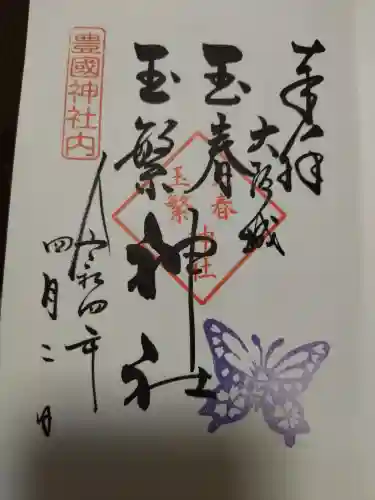 奉拝
大阪城
玉春
玉繁
神社
豊國神社内
令和四年
四月二日
玉春
玉繁
神社